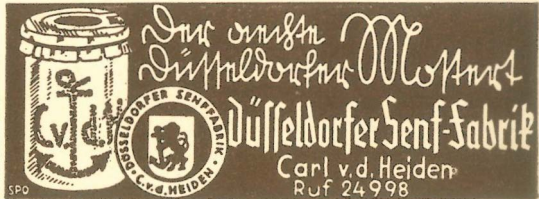 Der aechte
Düsseldorfer Mostert
Düsseldorfer Senf-Fabrik
Carl v. d. Heiden
Ruf 24998
C.v.d.H.
DÜSSELDORFER SENFFABRIK · C.v.d.HEIDEN ·
SPO